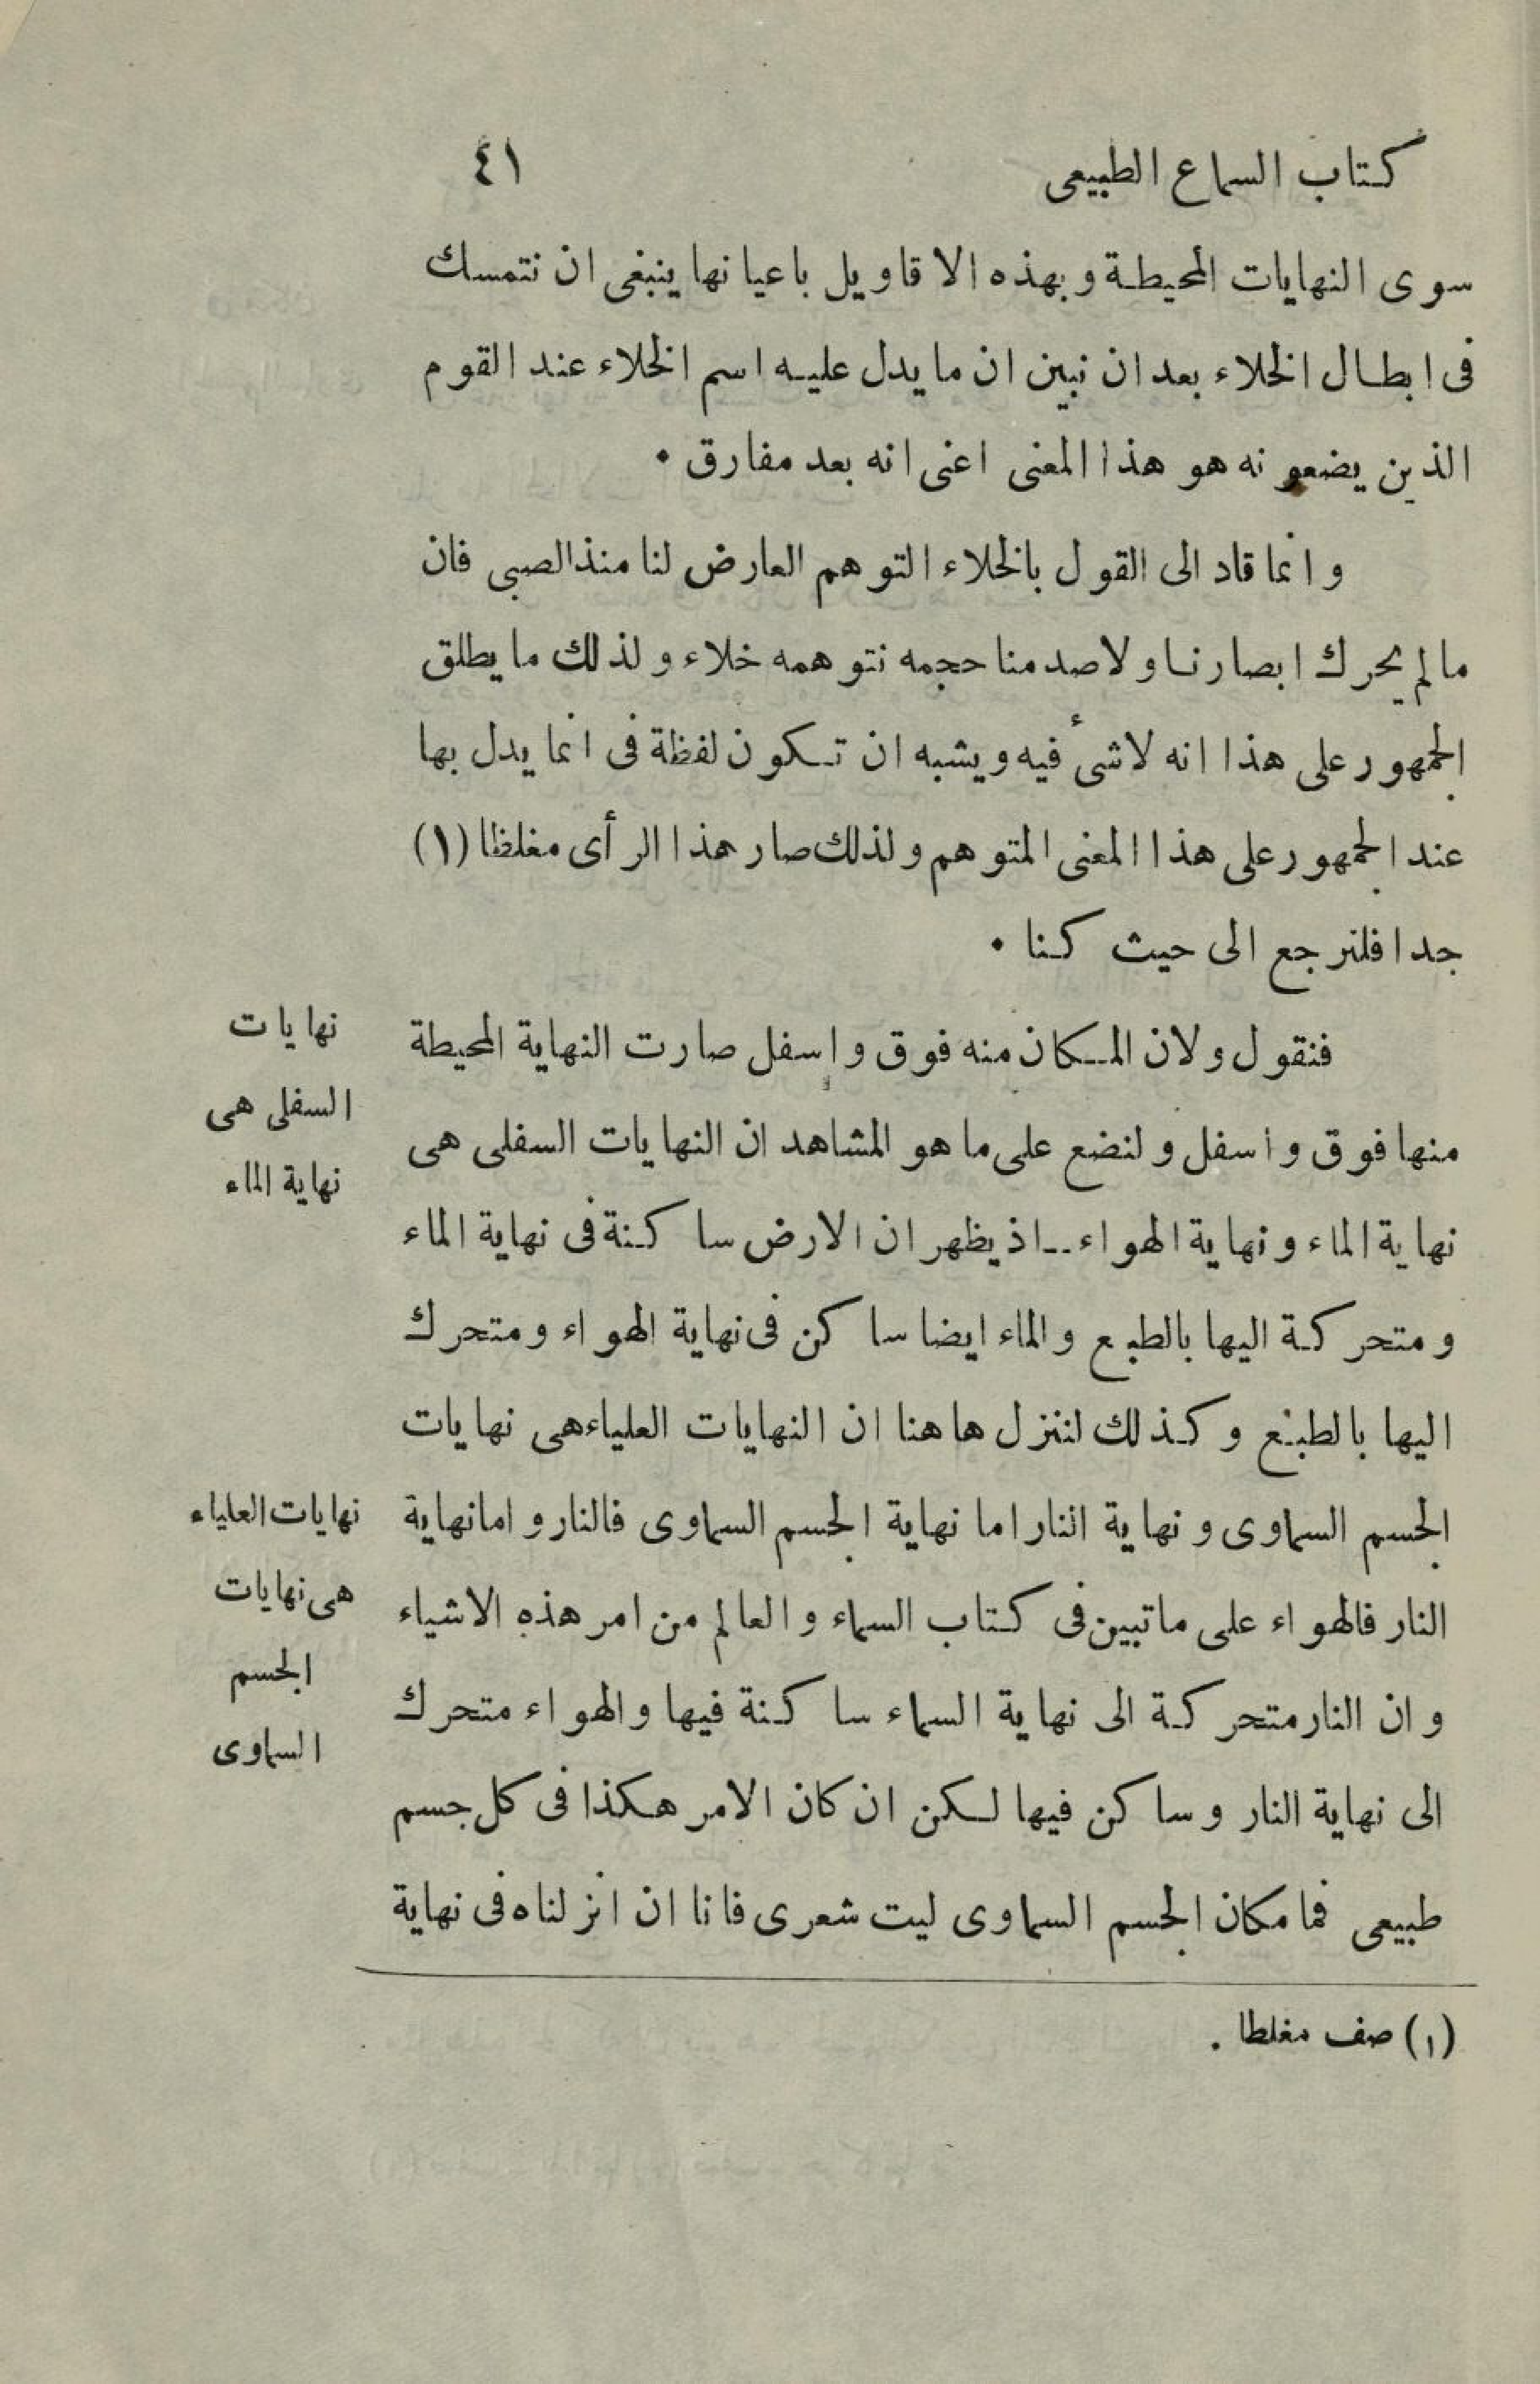 كتاب السماع الطبيعى ٤١
سوى النهايات المحيطة وبهذه الاقاويل باعيانها ينبغى ان نتمسك
فى ابطال الخلاء بعد ان نبين ان ما يدل عليه اسم الخلاء عند القوم
الذين يضعونه هو هذا المعنى اعنى انه بعد مفارق ·
وانما قاد الى القول بالخلاء التوهم العارض لنا منذ الصبى فان
ما لم يحرك ابصارنا ولا صدمنا حجمه نتوهمه خلاء ولذلك ما يطلق
الجمهور على هذا انه لاشئ فيه ويشبه ان تكون لفظة فى انما يدل بها
عند الجمهور على هذا المعنى المتوهم ولذلك صار هذا الرأى مغلظا (١)
جدا فلنرجع الى حيث كنا ·
فنقول ولان المكان منه فوق واسفل صارت النهاية المحيطة
منها فوق واسفل ولنضع على ما هو المشاهد ان النهايات السفلى هى
نهاية الماء ونهاية الهواء -- اذ يظهر ان الارض ساكنة فى نهاية الماء
ومتحركة اليها بالطبع والماء ايضا ساكن فى نهاية الهواء ومتحرك
اليها بالطبع وكذلك لننزل هاهنا ان النهايات العلياء هى نهايات
الجسم السماوى ونهاية النار اما نهاية الجسم السماوى فالنار واما نهاية
النار فالهواء على ما تبين فى كتاب السماء والعالم من امر هذه الاشياء
وان النار متحركة الى نهاية السماء ساكنة فيها والهواء متحرك
الى نهاية النار وساكن فيها لكن ان كان الامر هكذا فى كل جسم
طبيعى فما مكان الجسم السماوى ليت شعرى فانا ان انزلناه فى نهاية
نهايات
السفلى هى
نهاية الماء
نهايات العلياء
هى نهايات
الجسم
السماوى
(١) صف مغلطا .